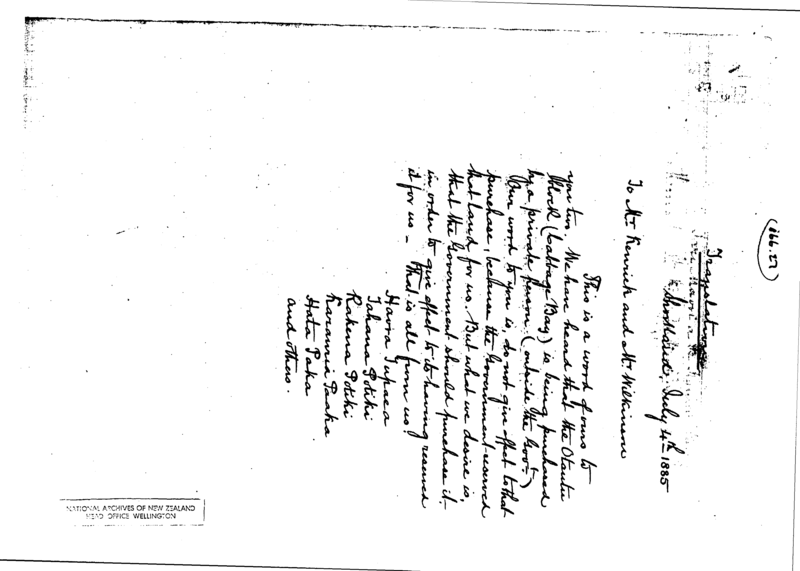 (166.27)
Translation
Shortland, July 4th 1885
To Mr Kenrick and Mr Wilkinson
This is a word of ours to
you two. We have heard that the Otautu
Block (Cabbage Bay) is being purchased
by a private person (outside the Govt.)
Our word to you is, do not give effect to that
purchase, because the Government reserved
that land for us. But what we desire is,
that the Government should purchase it
in order to give effect to its having reserved
it for us – That is all from us
Havora Tupaea
Tahana Potiki
Rakena Potiki
Karauria Paaka
Hata Paka
and others.
NATIONAL ARCHIVES OF NEW ZEALAND
HEAD OFFICE WELLINGTON